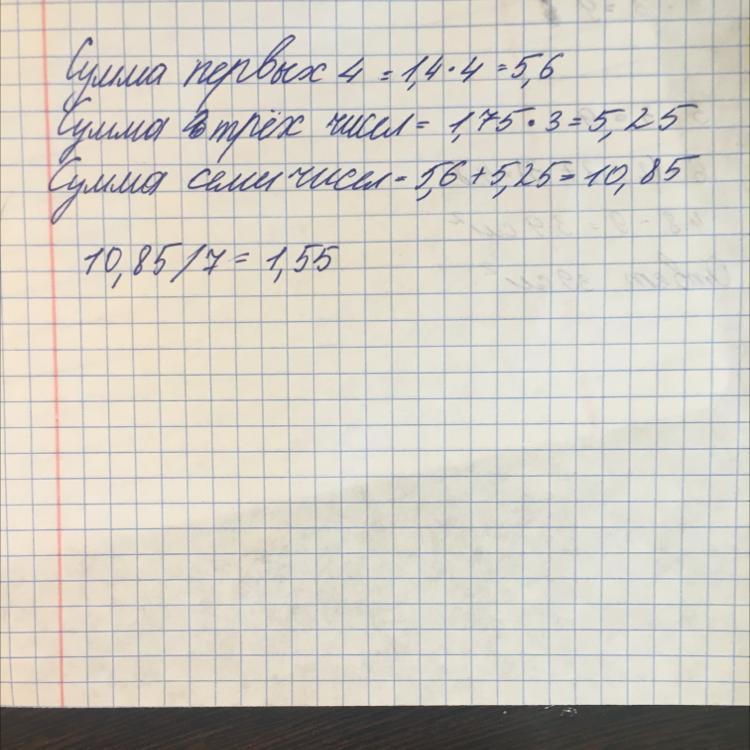 Сумма первых 4 = 1,4 · 4 = 5,6
Сумма трёх чисел = 1,75 · 3 = 5,25
Сумма семи чисел = 5,6 + 5,25 = 10,85
10,85 / 7 = 1,55